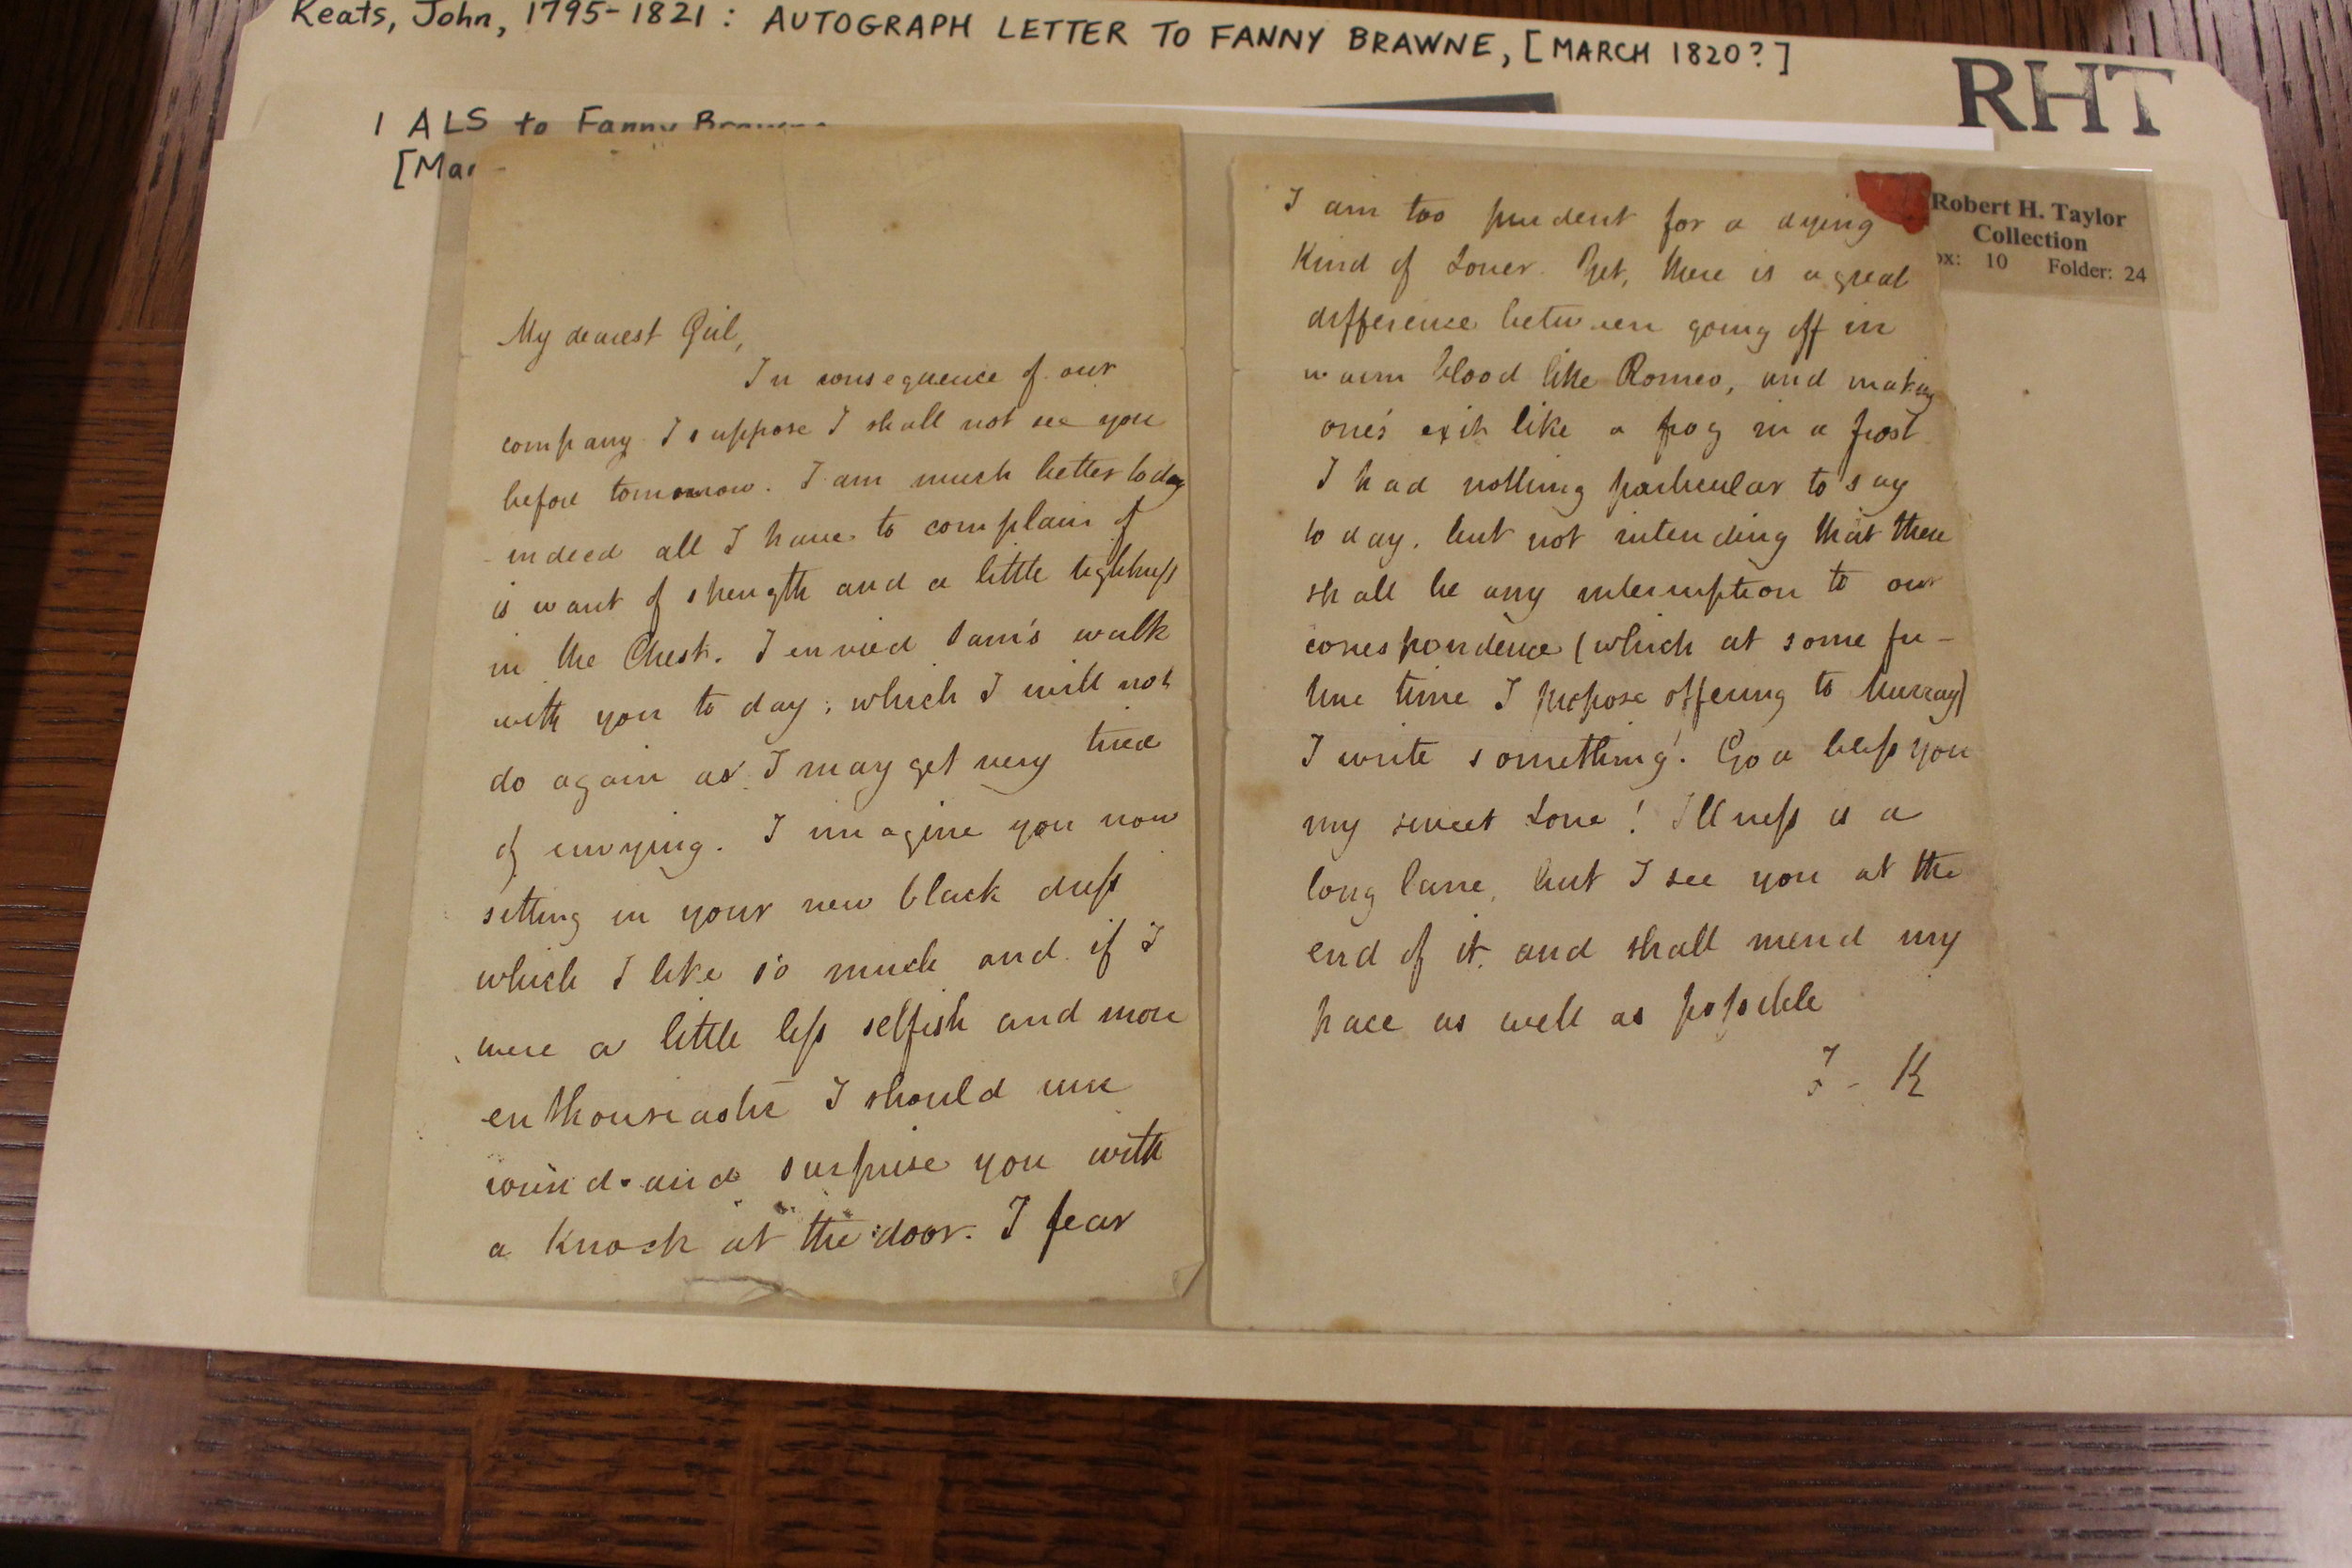 Keats, John, 1795-1821: AUTOGRAPH LETTER TO FANNY BRAWNE, [MARCH 1820?]
RHT
1 ALS to Fanny Brawne
[Mar
Robert H. Taylor
Collection
ox: 10 Folder: 24
My dearest Girl,
In consequence of our
company I suppose I shall not see you
before tomorrow. I am much better today
indeed all I have to complain of
is want of strength and a little tightness
in the Chest. I envied Sam's walk
with you to day; which I will not
do again as I may get very tired
of envying. I imagine you now
sitting in your new black dress
which I like so much and if I
were a little less selfish and more
enthousiastic I should run
round and surprise you with
a knock at the door. I fear
I am too prudent for a dying
kind of Lover. Yet, there is a great
difference between going off in
warm blood like Romeo, and making
one's exit like a frog in a frost
I had nothing particular to say
to day, but not intending that there
shall be any interruption to our
correspondence (which at some fu-
ture time I propose offering to Murray)
I write something! God bless you
my sweet Love! Illness is a
long lane, but I see you at the
end of it, and shall mend my
pace as well as possible
J - K